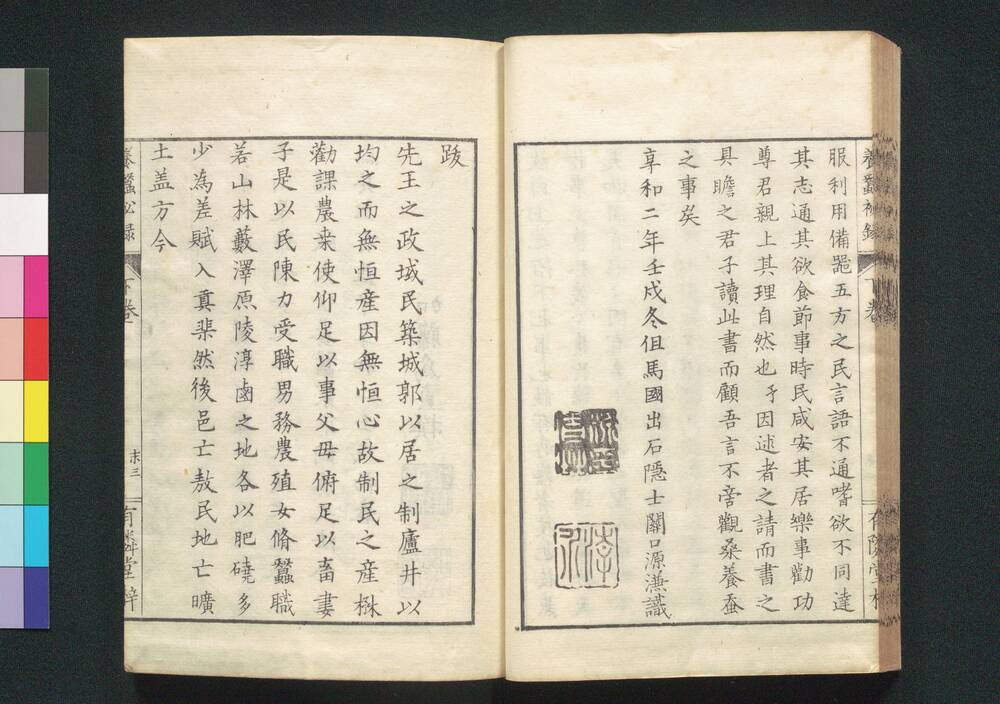 養蠶秘録
下巻
服利用備噐五方之民言語不通嗜欲不同達
其志通其欲食節事時民咸安其居樂事勸功
尊君親上其理自然也予因述者之請而書之
具瞻之君子讀此書而顧吾言不啻觀桑養蚕
之事矣
享和二年壬戍冬但馬國出石隱士關口源濂識
跋
先王之政域民築城郭以居之制廬井以
均之而無恒産因無恒心故制民之産樹
勸課農桒使仰足以事父母俯足以畜妻
子是以民陳力受職男務農殖女脩蠶職
若山林藪澤原陵淳鹵之地各以肥磽多
少為差賦入貢棐然後邑亡敖民地亡曠
土盖方今
養蠶秘録
下巻
末三
有隣堂梓